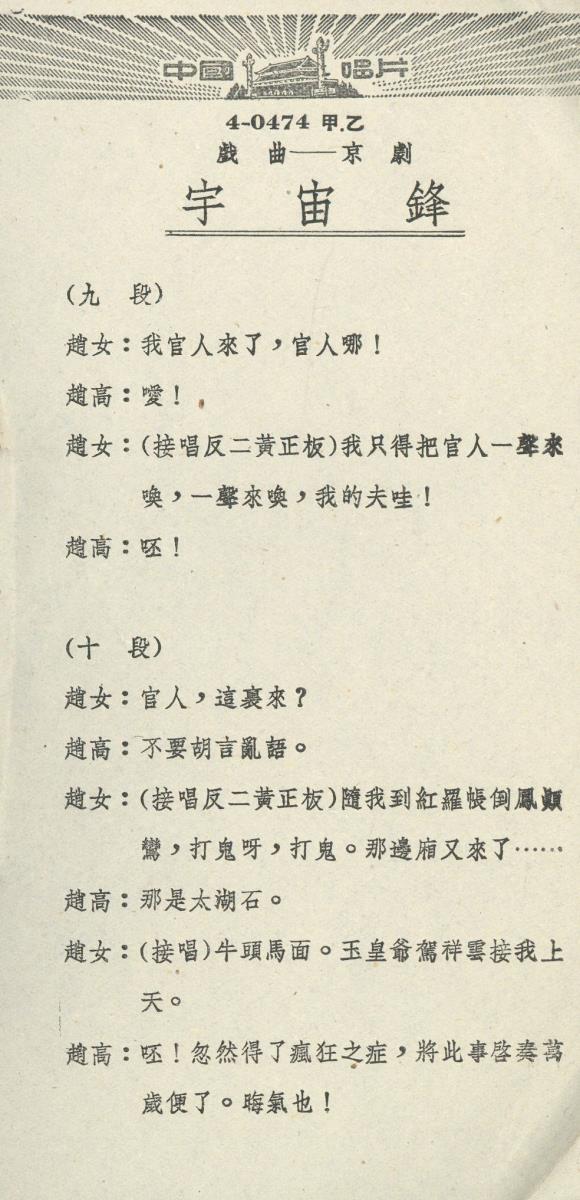 中國唱片
4-0474 甲.乙
戲 曲——京 劇
宇 宙 鋒
(九 段)
趙女：我官人來了，官人哪！
趙高：噯！
趙女：(接唱反二黃正板)我只得把官人一聲來
喚，一聲來喚，我的夫哇！
趙高：呸！
(十 段)
趙女：官人，這裏來？
趙高：不要胡言亂語。
趙女：(接唱反二黃正板)隨我到紅羅帳倒鳳顛
鸞，打鬼呀，打鬼。那邊廂又來了……
趙高：那是太湖石。
趙女：(接唱)牛頭馬面。玉皇爺駕祥雲接我上
天。
趙高：呸！忽然得了瘋狂之症，將此事啓奏萬
歲便了。晦氣也！